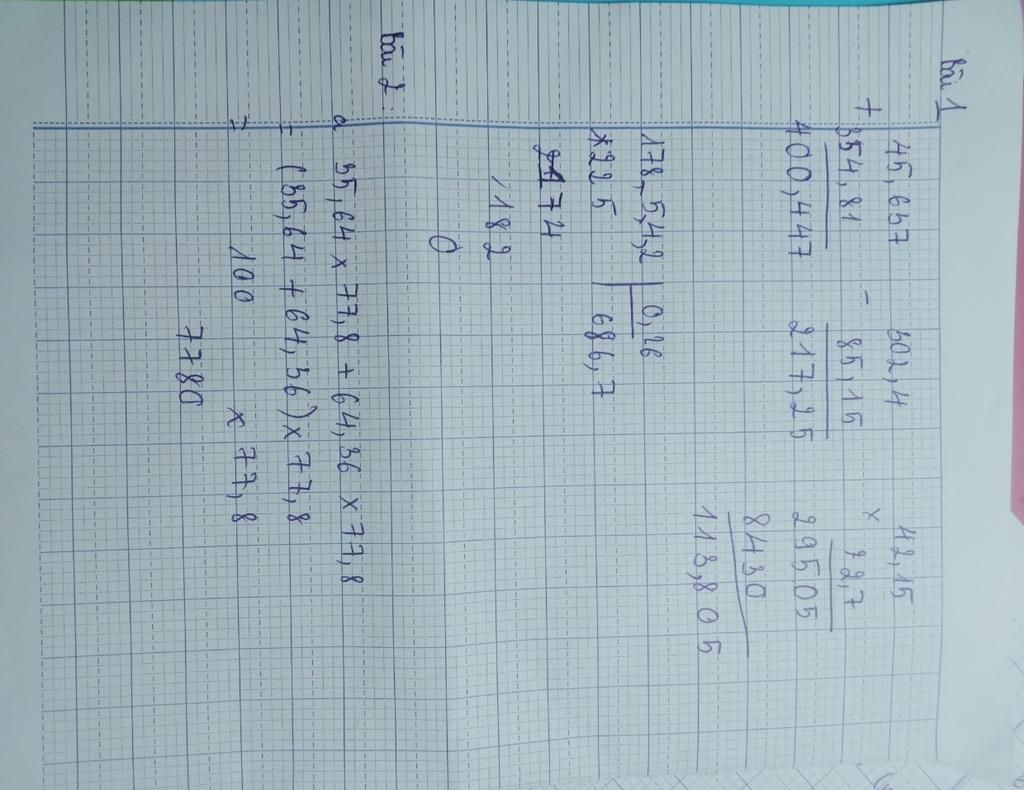 Bài 1
45,637 302,4 42,15
+ 354,81 - 85,15 x 2,7
400,447 217,25 29505
8430
113,805
178,5,4,2 0,26
225 686,7
174
182
0
Bài 2:
a 35,64 x 77,8 + 64,36 x 77,8
= (35,64 + 64,36) x 77,8
= 100 x 77,8
7780